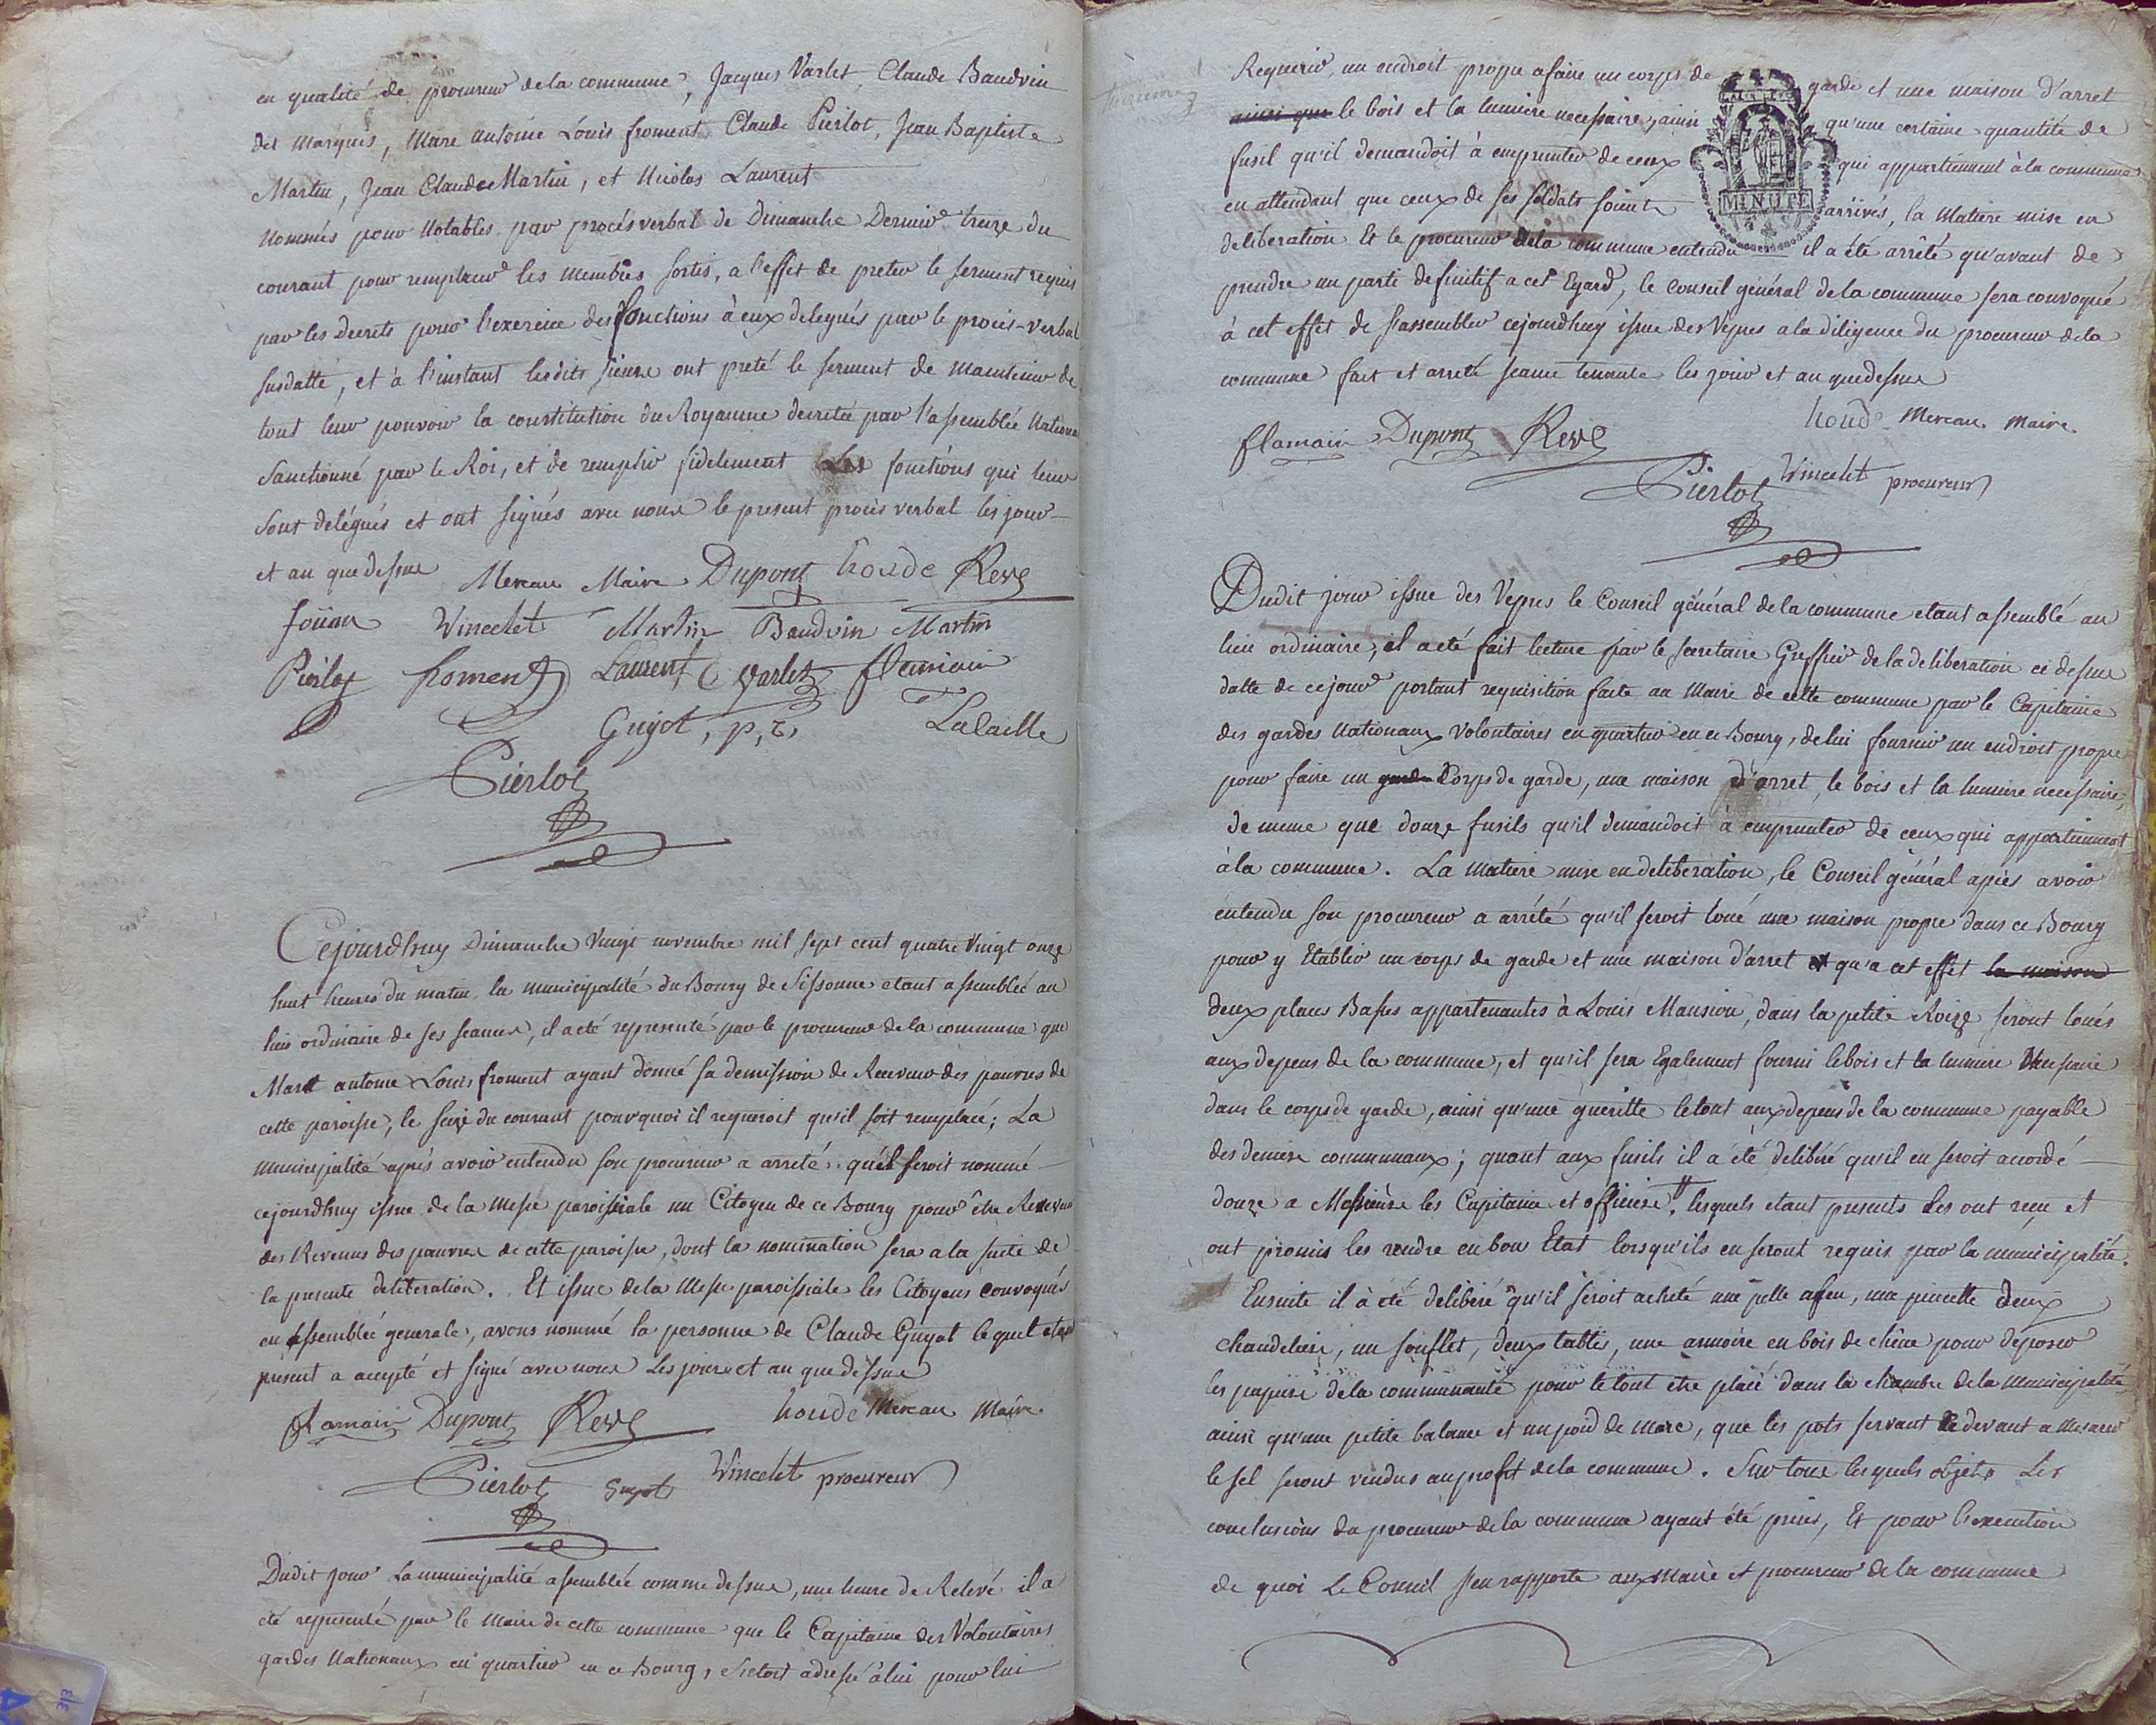 en qualité de procureur de la commune, Jacques Varlet, Claude Baudvin
dit Marquis, Marc antoine Louis froment, Claude Pierlot, Jean Baptiste
Martin, Jean Claude Martin, et Nicolas Laurent
nommés pour notables par procès verbal de Dimanche Dernier treize du
courant pour remplacer les membres sortis, a l'effet de preter le serment requis
par les Decrets pour l'exercice des fonctions à eux delegués par le procès-verbal
susdatté, et à l'instant lesdits sieurs ont preté le serment de maintenir de
tout leur pouvoir la constitution du Royaume decretée par l'assemblée Nationa
Sanctionné par le Roi, et de remplir fidelement les fonctions qui leur
sont delégués et ont signés avec nous le present procès verbal les jour
et an que dessus Mereau Maire Dupont houde Revé
foüan Vincelet Martin Baudvin Martin
Pierlot froment Laurent C Varlet flamain
Guyot, p, r, Lalaille
Pierlot
Cejourdhuy Dimanche Vingt novembre mil sept cent quatre Vingt onze
huit heures du matin la municipalité du Bourg de Sissonne etant assemblée au
lieu ordinaire de ses seances, il a eté representé par le procureur de la commune que
Marc antoine Louis froment ayant donné sa demission de Receveur des pauvres de
cette paroisse, le seize du courant pourquoi il requeroit qu'il soit remplacé; La
municipalité après avoir entendu son procureur a arreté qu'il seroit nommé
cejourdhuy issue de la Messe paroissiale un Citoyen de ce Bourg pour être Receveur
des Revenus des pauvres de cette paroisse, dont la nomination sera a la suite de
la presente deliberation. Et issue de la Messe paroissiale les Citoyens convoqués
en assemblée generale, avons nommé la personne de Claude Guyot lequel etant
présent a accepté et signé avec nous Les jour et an que dessus
flamain Dupont Revé houde Mereau Maire
Pierlot Guyot Vincelet procureur
Dudit jour La municipalité assemblée comme dessus, une heure de Relevé il a
eté representé par le Maire de cette commune que le Capitaine des Volontaires
gardes Nationaux en quartier en ce Bourg, s'etoit adressé à lui pour lui
Requerir, un endroit propre a faire un corps de garde et une maison d'arret
ainsi que le bois et la lumiere necessaire, ainsi qu'une certaine quantité de
fusil qu'il demandoit à emprunter de ceux qui appartiennent à la commune
en attendant que ceux de ses soldats soient arrivés, la Matiere mise en
MINUTE
deliberation Et le procureur de la commune entendu il a été arrêté qu'avant de
prendre un parti definitif a cet Egard, le conseil général de la commune sera convoqué
à cet effet de s'assembler cejourdhuy issue des Vepres a la diligence du procureur de la
commune fait et arreté seance tenante les jour et an que dessus
flamain Dupont Revé houde Mereau Maire
Pierlot Vincelet procureur
Dudit jour issue des Vepres le Conseil général de la commune etant assemblé au
lieu ordinaire, il a eté fait lecture par le secretaire Greffier de la deliberation ci dessus
datte de ce jour portant requisition faite au Maire de cette commune par le Capitaine
des gardes Nationaux Volontaires en quartier en ce Bourg, de lui fournir un endroit propre
pour faire un garde Corps de garde, une maison d'arret, le bois et la lumiere necessaire,
de meme que douze fusils qu'il demandoit à emprunter de ceux qui appartiennent
à la commune. La Matiere mise en deliberation, le Conseil général après avoir
entendu son procureur a arrété qu'il seroit loué une maison propre dans ce Bourg
pour y Etablir un corps de garde et une maison d'arret et qu'a cet effet la maison
deux places Basses appartenantes à Louis Mansion, dans la petite Roize seront loués
aux depens de la commune, et qu'il sera Egalement fourni le bois et la lumiere Necessaire
dans le corps de garde, ainsi qu'une gueritte le tout aux depens de la commune payable
des deniers communaux; quant aux fusils il a été delibéré qu'il en seroit accordé
douze a Messieurs les Capitaine et officiers. lesquels etant presents les ont reçu et
ont promis les rendre en bon Etat lorsqu'ils en seront requis par la municipalité.
Ensuite il à été deliberé qu'il seroit acheté une pelle a feu, une pincette deux
chandeliers, un souflet, deux tables, une armoire en bois de chêne pour déposer
les papiers de la communauté pour le tout etre placé dans la chambre de la municipalité
ainsi qu'une petite balance et un poid de marc, que les pots servant ci devant a Mesurer
le sel seront vendus au profit de la commune. Sur tous lesquels objets Les
conclusions du procureur de la commune ayant été prises, Et pour l'execution
de quoi Le Conseil s'en rapporte aux Maire et procureur de la commune